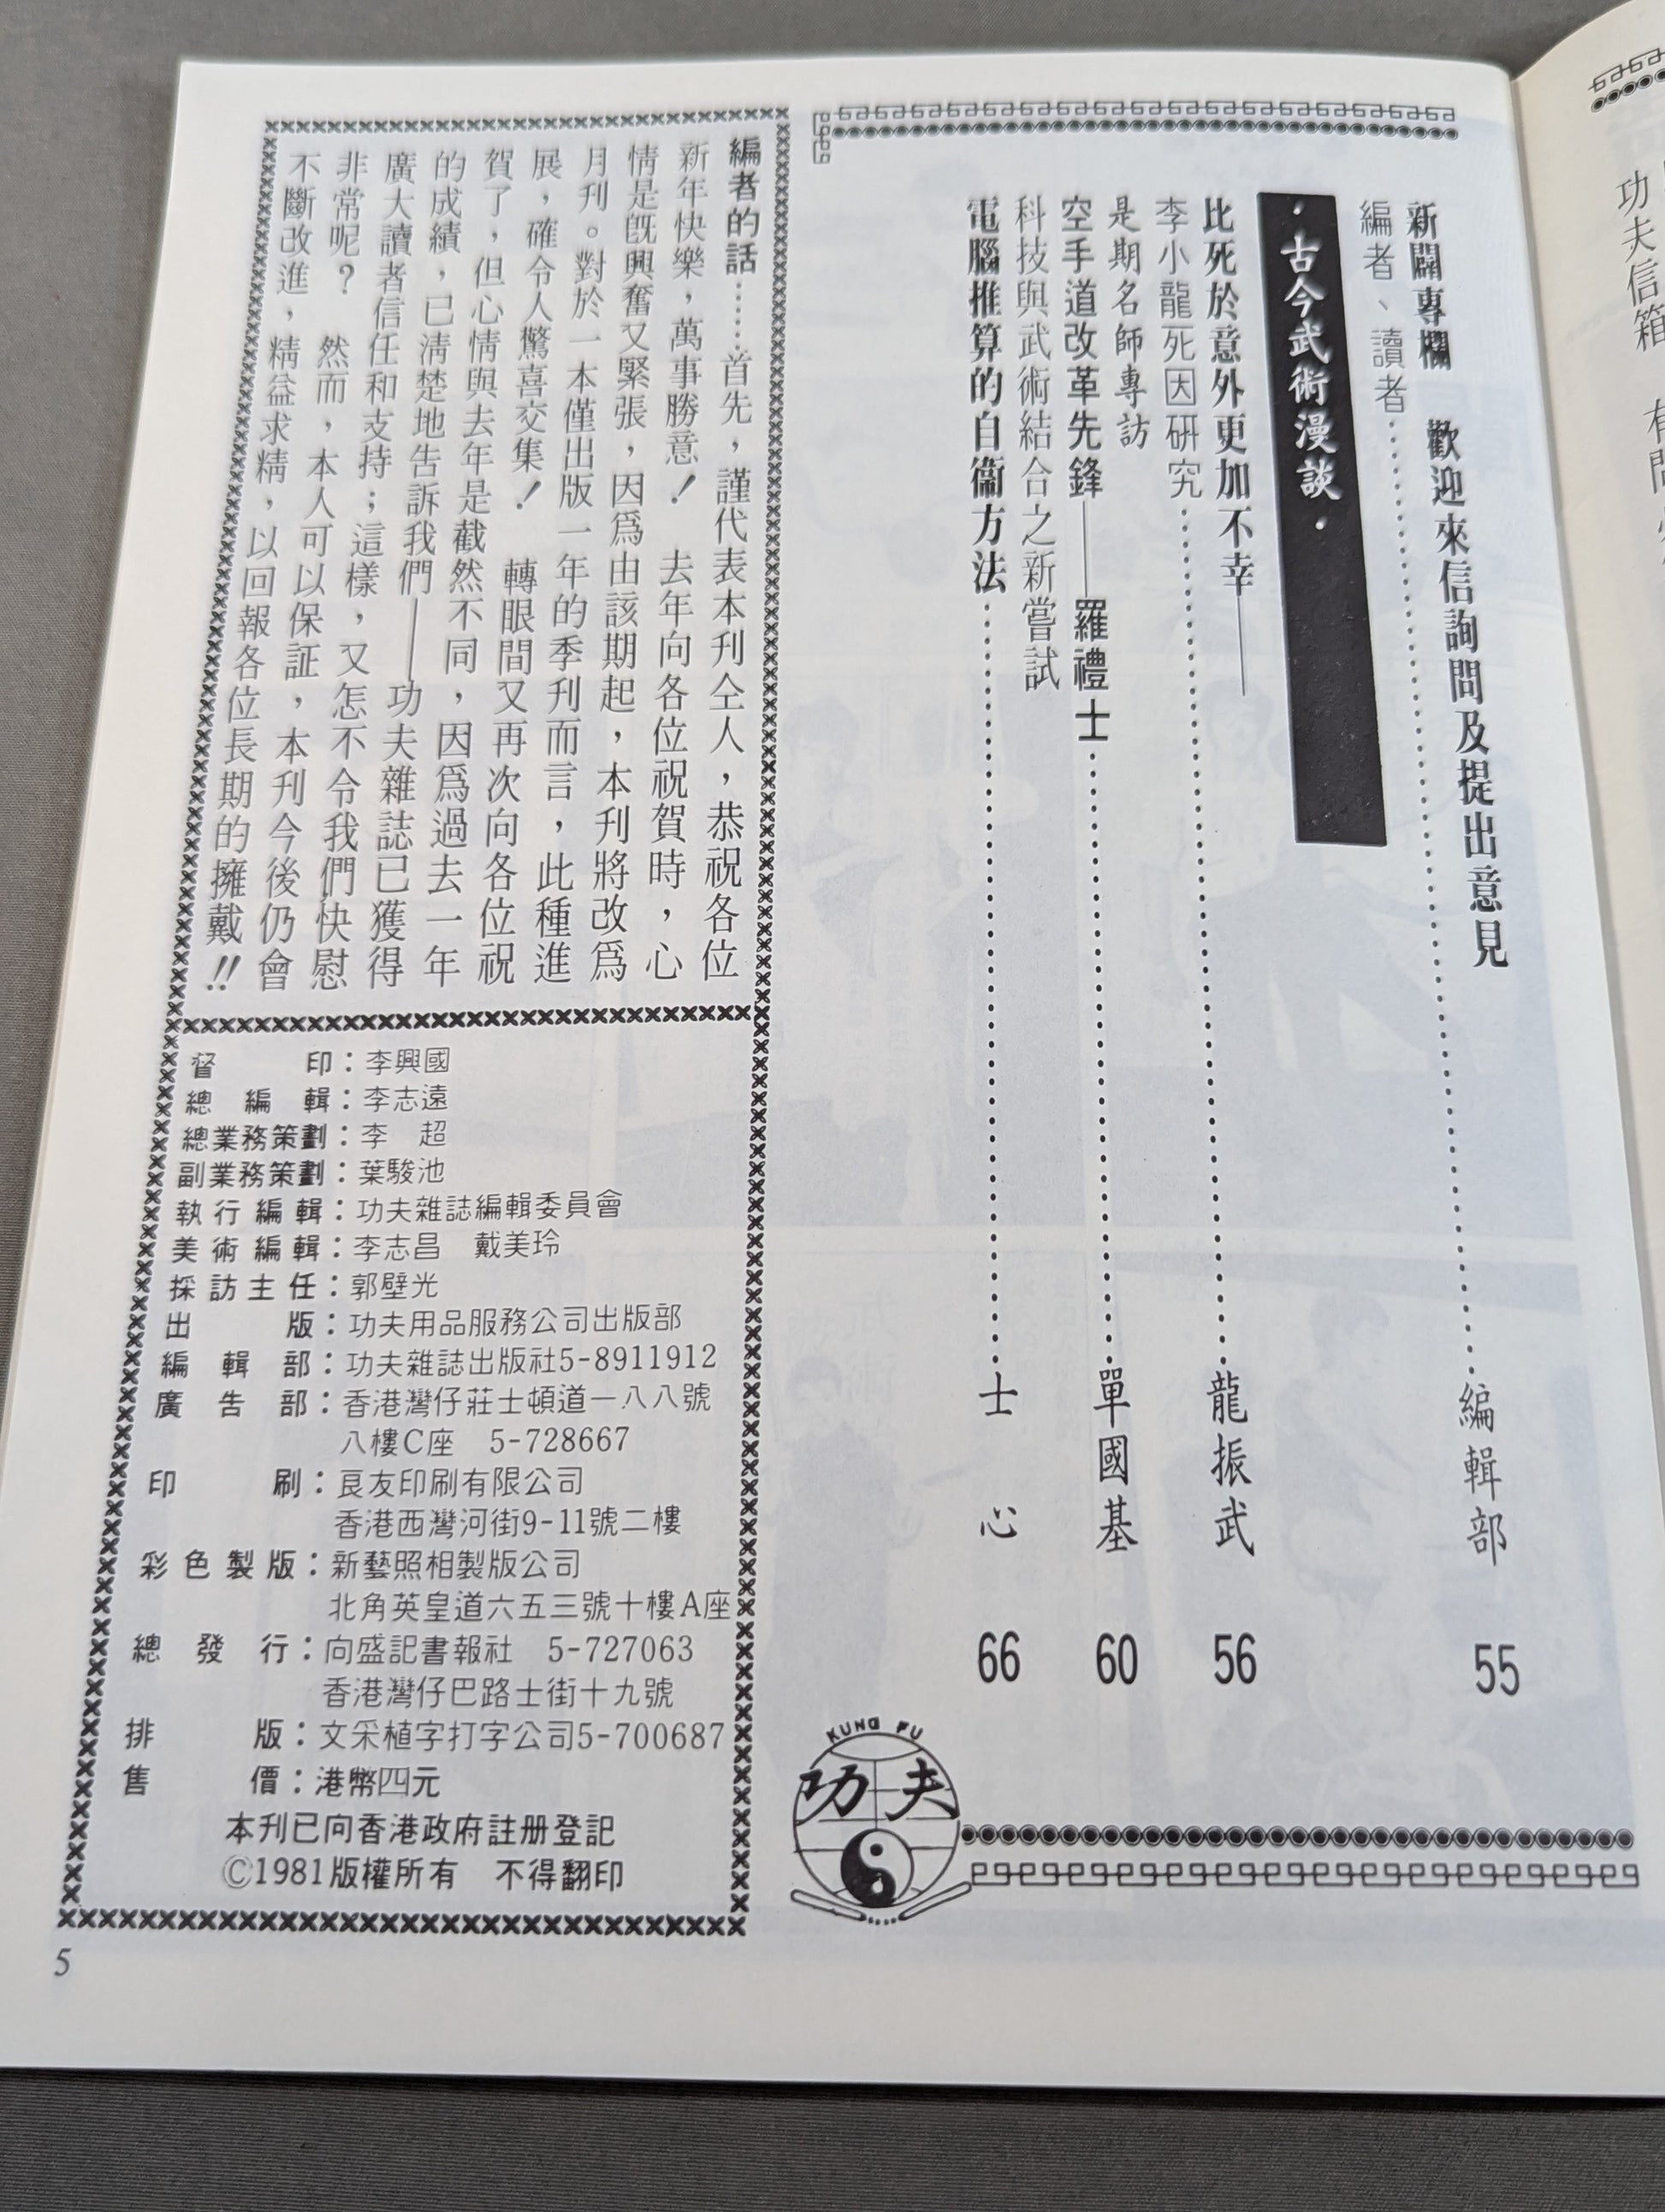 功夫信箱
新闢專欄　歡迎來信詢問及提出意見
編者、讀者……編輯部 55
·古今武術漫談·
比死於意外更加不幸——
李小龍死因研究……龍振武 56
是期名師專訪
空手道改革先鋒——羅禮士……單國基 60
科技與武術結合之新嘗試
電腦推算的自衞方法……士心 66
KUNG FU
功夫
編者的話……首先，謹代表本刊仝人，恭祝各位
新年快樂，萬事勝意！　去年向各位祝賀時，心
情是既興奮又緊張，因爲由該期起，本刊將改爲
月刊。對於一本僅出版一年的季刊而言，此種進
展，確令人驚喜交集！　轉眼間又再次向各位祝
賀了，但心情與去年是截然不同，因爲過去一年
的成績，已淸楚地告訴我們——功夫雜誌已獲得
廣大讀者信任和支持；這樣，又怎不令我們快慰
非常呢？　然而，本人可以保証，本刊今後仍會
不斷改進，精益求精，以回報各位長期的擁戴!!
督印：李興國
總編輯：李志遠
總業務策劃：李　超
副業務策劃：葉駿池
執行編輯：功夫雜誌編輯委員會
美術編輯：李志昌　戴美玲
採訪主任：郭壁光
出版：功夫用品服務公司出版部
編輯部：功夫雜誌出版社5-8911912
廣告部：香港灣仔莊士頓道一八八號
八樓C座　5-728667
印刷：良友印刷有限公司
香港西灣河街9-11號二樓
彩色製版：新藝照相製版公司
北角英皇道六五三號十樓A座
總發行：向盛記書報社　5-727063
香港灣仔巴路士街十九號
排版：文采植字打字公司5-700687
售價：港幣四元
本刊已向香港政府註册登記
©1981版權所有　不得翻印
5